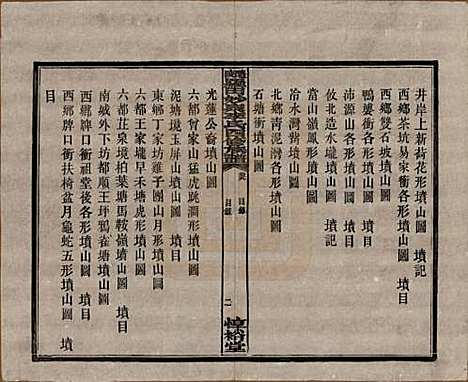 井岸上新荷花形墳山圖 墳記
西鄉茶坑易家衝各形墳山圖
西鄉雙石坡墳山圖
鴨婆衝各形墳山圖 墳目
沛源山各形墳山圖 墳記
攸北墳山圖
當山嶺鳳形墳山圖
冷水灣墳山圖
北鄉青泥灣各形墳山圖
石塘衝墳山圖
族譜
目錄
目錄
二
惇裕堂
光蓮公畲墳山圖
六都曾家山猛虎跳澗形墳山圖
泥塘境玉屏山墳山圖 墳目
東鄉丁家坊雞子團山月形墳山圖
六都王家壠早禾塘虎形墳山圖
六都苴泉境柏葉塘馬鞍嶺墳山圖
南城外下坊都順王坪鴉雀塘墳山圖
西鄉牌口衝祖堂後各形墳山圖 墳目
西鄉牌口衝扶椅盆月龜蛇五形墳山圖 墳
目